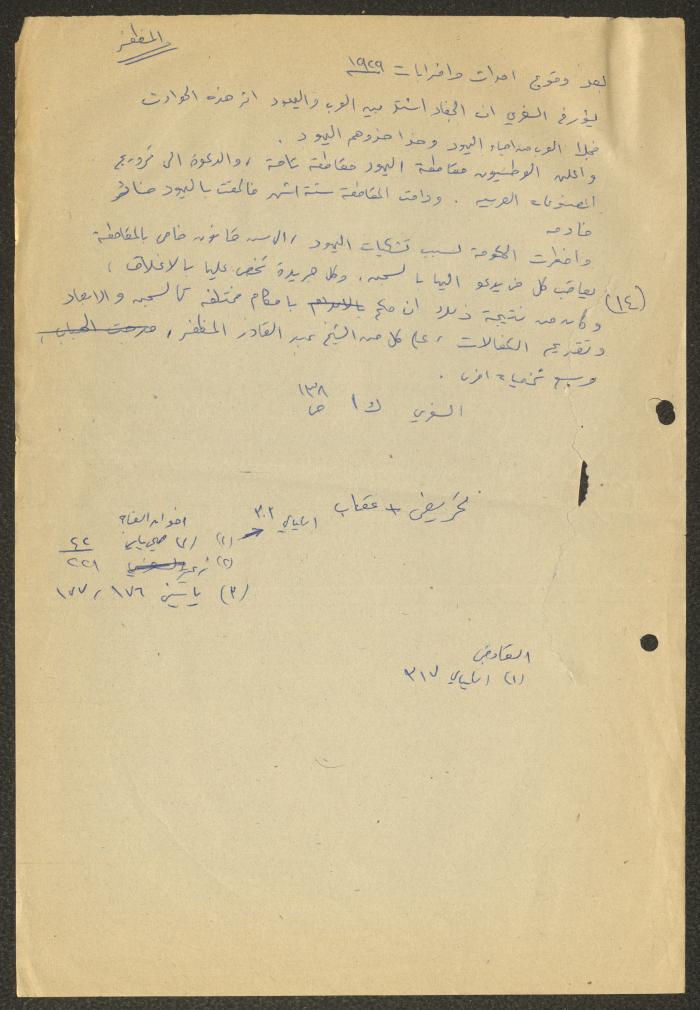 المظفر
بعد وقوع احداث واضرابات ١٩٢٩
يؤرخ السفري ان الجفاء اشتد بين العرب واليهود اثر هذه الحوادث
فجلا العرب عن احياء اليهود وحذا حذوهم اليهود .
واعلن الوطنيون مقاطعة اليهود مقاطعة تامة ، والدعوة الى ترويج
المصنوعات العربية . ودامت المقاطعة ستة اشهر فالحقت باليهود خسائر
فادحة
واضطرت الحكومة لسبب تشكيات اليهود ، الى سن قانون خاص بالمقاطعة
يعاقب كل من يدعو اليها بالسجن ، وكل جريدة تحض عليها بالاغلاق ،
(١٤) وكان من نتيجة ذلك ان حكم بالاعدام باحكام مختلفة كالسجن والابعاد
وتقديم الكفالات ، على كل من الشيخ عبد القادر المظفر ،
وسبع شخصيات اخرى .
السفري ك ١ ص ١٣٨
تحريض + عقاب
الكيالي ٣٠٢
اخوان الصفاء
(١)
٤٢
(٢) زعيتر ٢٢١
(٣) ياسين ١٧٦ ، ١٧٧
(١) الكيالي ٣١٧